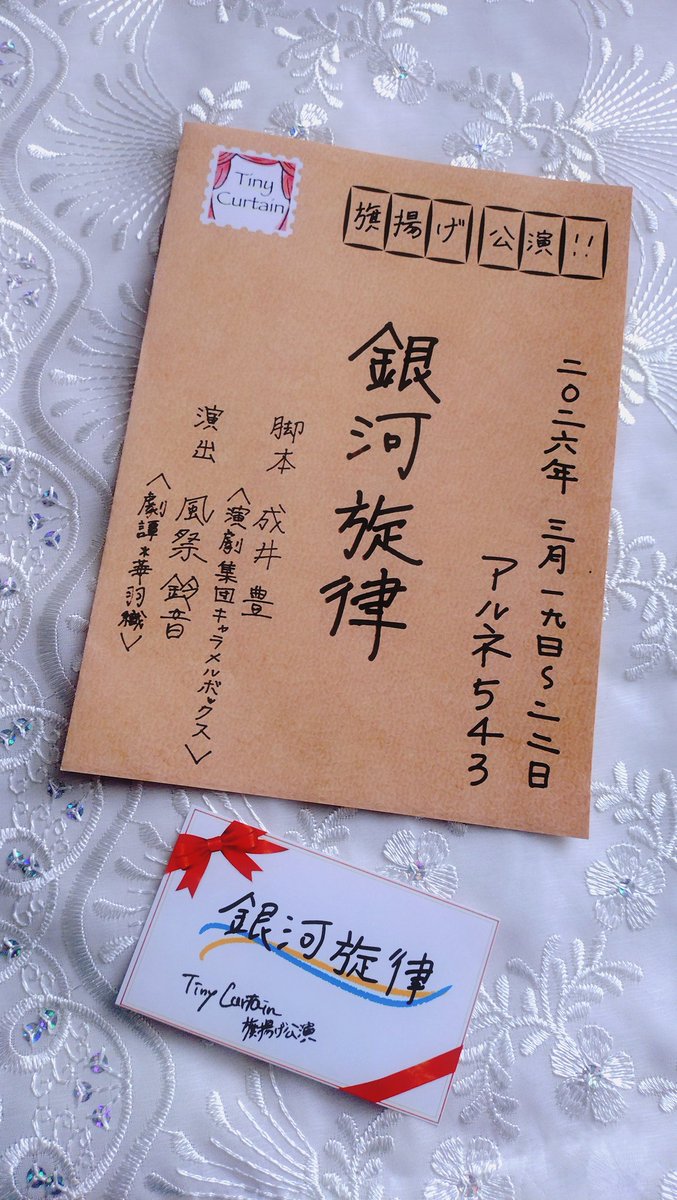 Tiny
Curtain
旗揚げ公演!!
二〇二六年 三月一九日~二二日
アルネ543
銀河旋律
脚本 成井 豊
〈演劇集団キャラメルボックス〉
演出 風祭 鈴音
〈劇譚*華羽織〉
銀河旋律
Tiny Curtain
旗揚げ公演